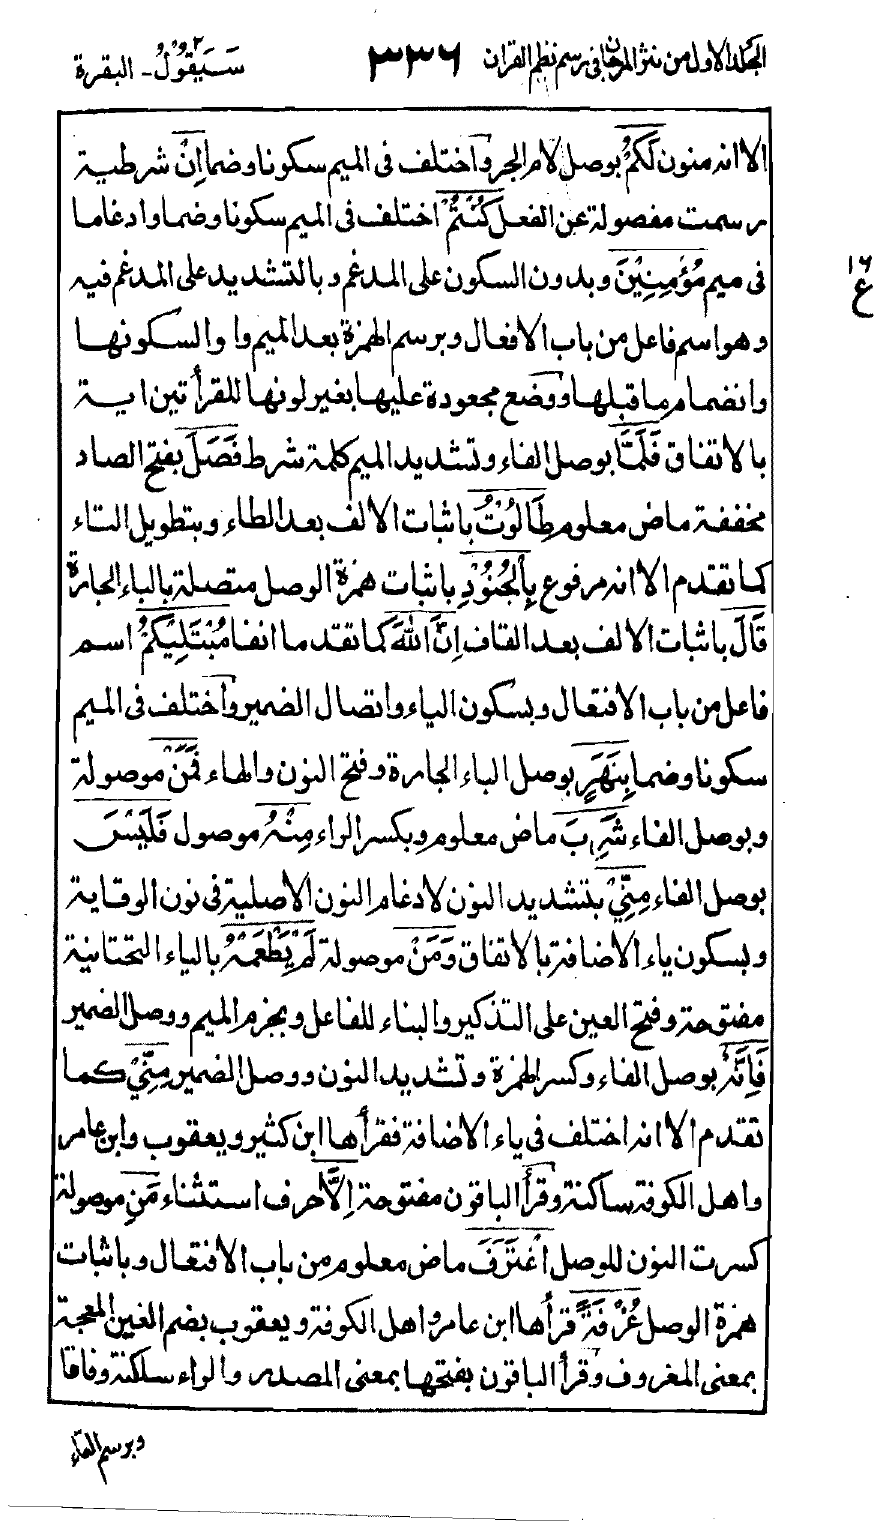 الجلد الاول من نثر المرجان في رسم نظم القران ٣٣٦ سَيَقُوْلُ ٢ - البقرة
الا انه منون لَكُمْ بوصل لام الجر واختلف فى الميم سكونا وضما اِنْ شرطية
رسمت مفصولة عن الفعل كُنْتُمْ اختلف فى الميم سكونا وضما وادغاما
فى ميم مُؤْمِنِيْنَ وبدون السكون على المدغم وبالتشديد على المدغم فيه
١٦
ع
وهو اسم فاعل من باب الافعال وبرسم الهمزة بعد الميم واوا لسكونها
وانضمام ما قبلها ووضع مجعودة عليها بغير لونها للقرأتين اية
بالاتفاق فَلَمَّا بوصل الفاء وتشديد الميم كلمة شرط فَصَلَ بفتح الصاد
مخففة ماض معلوم طَالُوْتُ باثبات الالف بعد الطاء وبتطويل التاء
كما تقدم الا انه مرفوع بِالْجُنُوْدِ باثبات همزة الوصل متصلة بالباء الجارة
قَالَ باثبات الالف بعد القاف اِنَّ اللّٰهَ كما تقدم انفا مُبْتَلِيْكُمْ اسم
فاعل من باب الافتعال وبسكون الياء واتصال الضمير واختلف فى الميم
سكونا وضما بِنَهَرٍ بوصل الباء الجارة وفتح النون والهاء فَمَنْ موصولة
وبوصل الفاء شَرِبَ ماض معلوم وبكسر الراء مِنْهُ موصول فَلَيْسَ
بوصل الفاء مِنِّيْ بتشديد النون لادغام النون الاصلية فى نون الوقاية
وبسكون ياء الاضافة بالاتفاق وَمَنْ موصولة لَمْ يَطْعَمْهُ بالياء التحتانية
مفتوحة وفتح العين على التذكير والبناء للفاعل وبجزم الميم ووصل الضمير
فَاِنَّهٗ بوصل الفاء وكسر الهمزة وتشديد النون ووصل الضمير مِنِّيْ كما
تقدم الا انه اختلف فى ياء الاضافة فقرأها ابن كثير ويعقوب وابن عامر
واهل الكوفة ساكنة وقرأ الباقون مفتوحة اِلَّا حرف استثناء مَنِ موصولة
كسرت النون للوصل اغْتَرَفَ ماض معلوم من باب الافتعال وباثبات
همزة الوصل غُرْفَةً قرأها ابن عامر واهل الكوفة ويعقوب بضم الغين المعجمة
بمعنى المغروف وقرأ الباقون بفتحها بمعنى المصدر والراء ساكنة وفاقا
وبرسم التاء